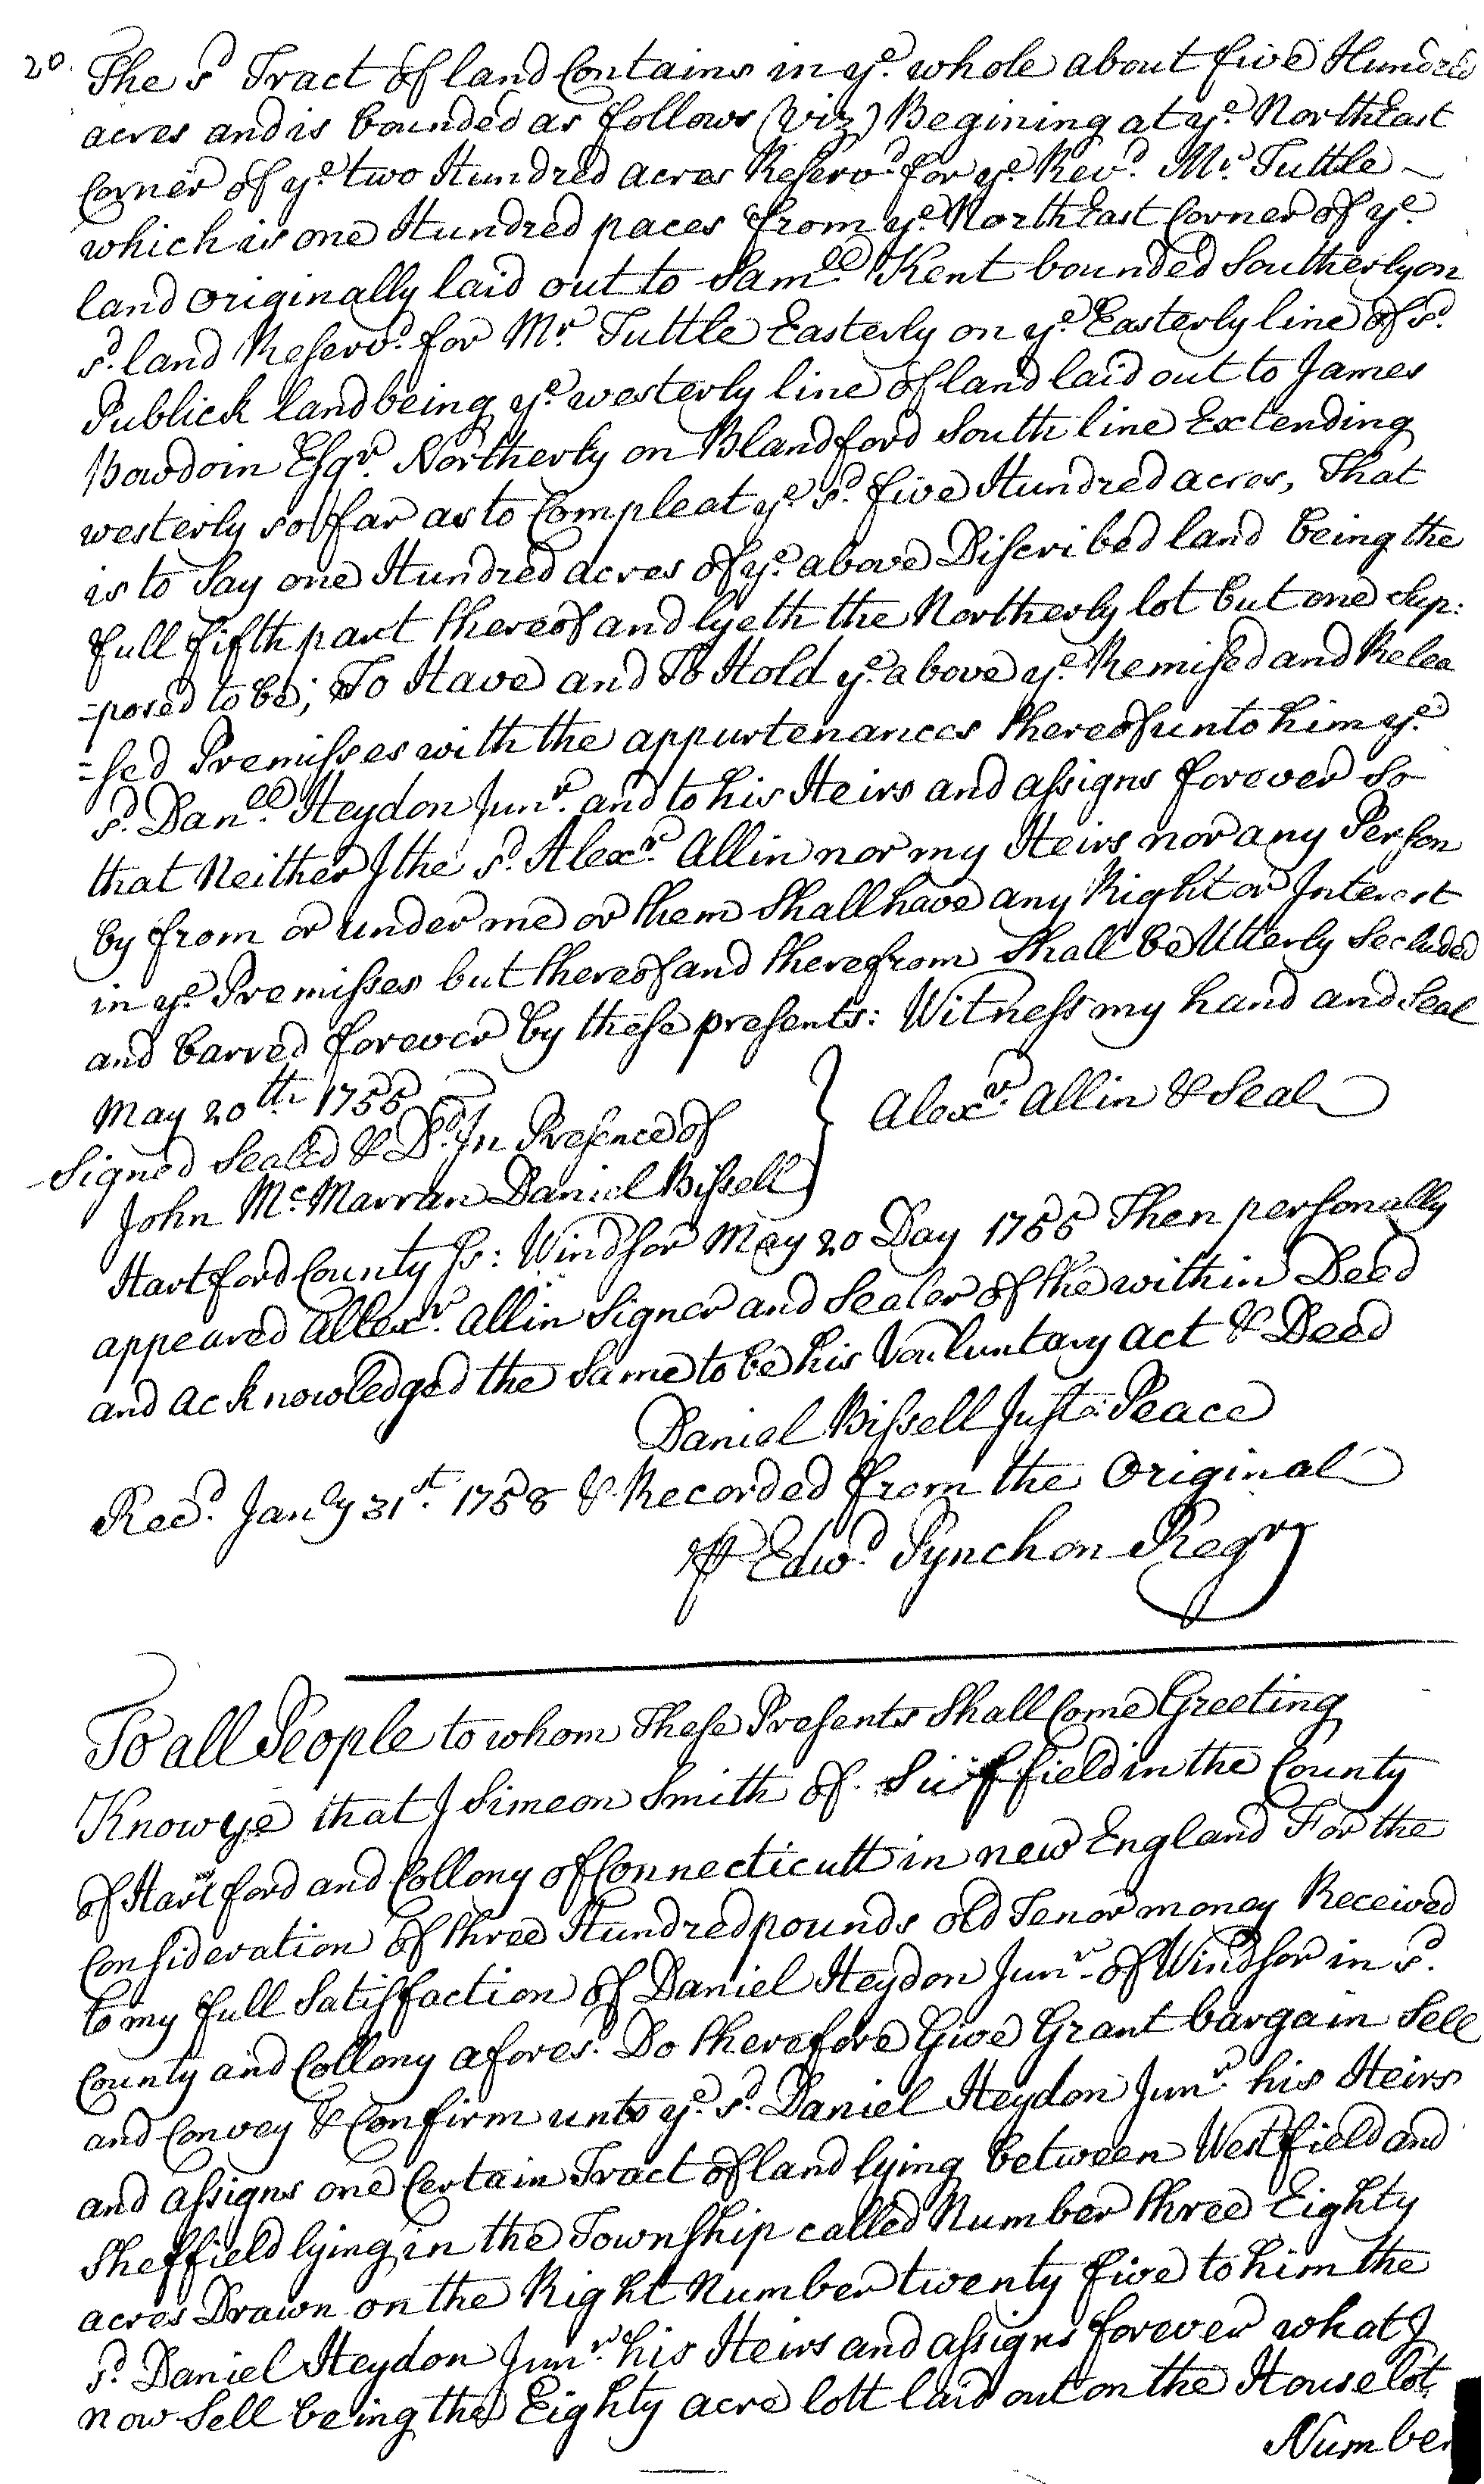 20. The sd Tract of land Contains in ye. whole about five Hundred
acres and is bounded as follows (viz) Begining at ye. NorthEast
Corner of ye. two Hundred acres Reserv'd. for ye. Revd. Mr. Tuttle ~
which is one Hundred paces from ye. NorthEast Corner of ye.
land originally laid out to Samll. Kent bounded Southerly on
sd. land Reserv'd. for Mr. Tuttle Easterly on ye. Easterly line of sd.
Publick land being ye. westerly line of land laid out to James
Bowdoin Esqr. Northerly on Blandford South line Extending
westerly so far as to Compleat ye. sd. five Hundred acres, That
is to Say one Hundred acres of ye. above Discribed land being the
full fifth part thereof and lyeth the Northerly lot but one Sup:
=posed to be; To Have and To Hold ye. above ye. Remised and Relea
=sed Premisses with the appurtenances thereof unto him ye.
sd. Danll. Heydon Junr. and to his Heirs and assigns forever So
that Neither I the sd. Alexr. Allin nor my Heirs nor any Person
by from or under me or them Shall have any Right or Interest
in ye. Premisses but thereof and therefrom Shall be Utterly Secluded
and barred forever by these presents: Witness my hand and Seal
May 20th 1755
Signed Sealed & Dd. In Presence of } Alexr. Allin & Seal
John McMarran Daniel Bissell
Hartford County Ss: Windsor May 20 Day 1755 Then personally
appeared Allexr. Allin Signer and Sealer of the within Deed
and acknowledged the Same to be his Voulluntary act & Deed
Daniel Bissell Just: Peace
Recd. Janly 31st. 1758 & Recorded from the Original
p Edwd. Pynchon Regr
To all People to whom These Presents Shall Come Greeting
Know ye that I Simeon Smith of Suffield in the County
of Hartford and Collony of Connecticutt in new England For the
Consideration of three Hundred pounds old Tenor money Received
to my full Satisfaction of Daniel Heydon Junr. of Windsor in sd.
County and Collony aforesd. Do therefore Give Grant bargain Sell
and Convey & Confirm unto ye. sd. Daniel Heydon Junr. his Heirs
and assigns one Certain Tract of land lying between Westfield and
Sheffield lying in the Township called Number three Eighty
acres Drawn on the Right Number twenty five to him the
sd. Daniel Heydon Junr. his Heirs and assigns forever what I
now Sell being the Eighty acre lott laid out on the House lot
Number